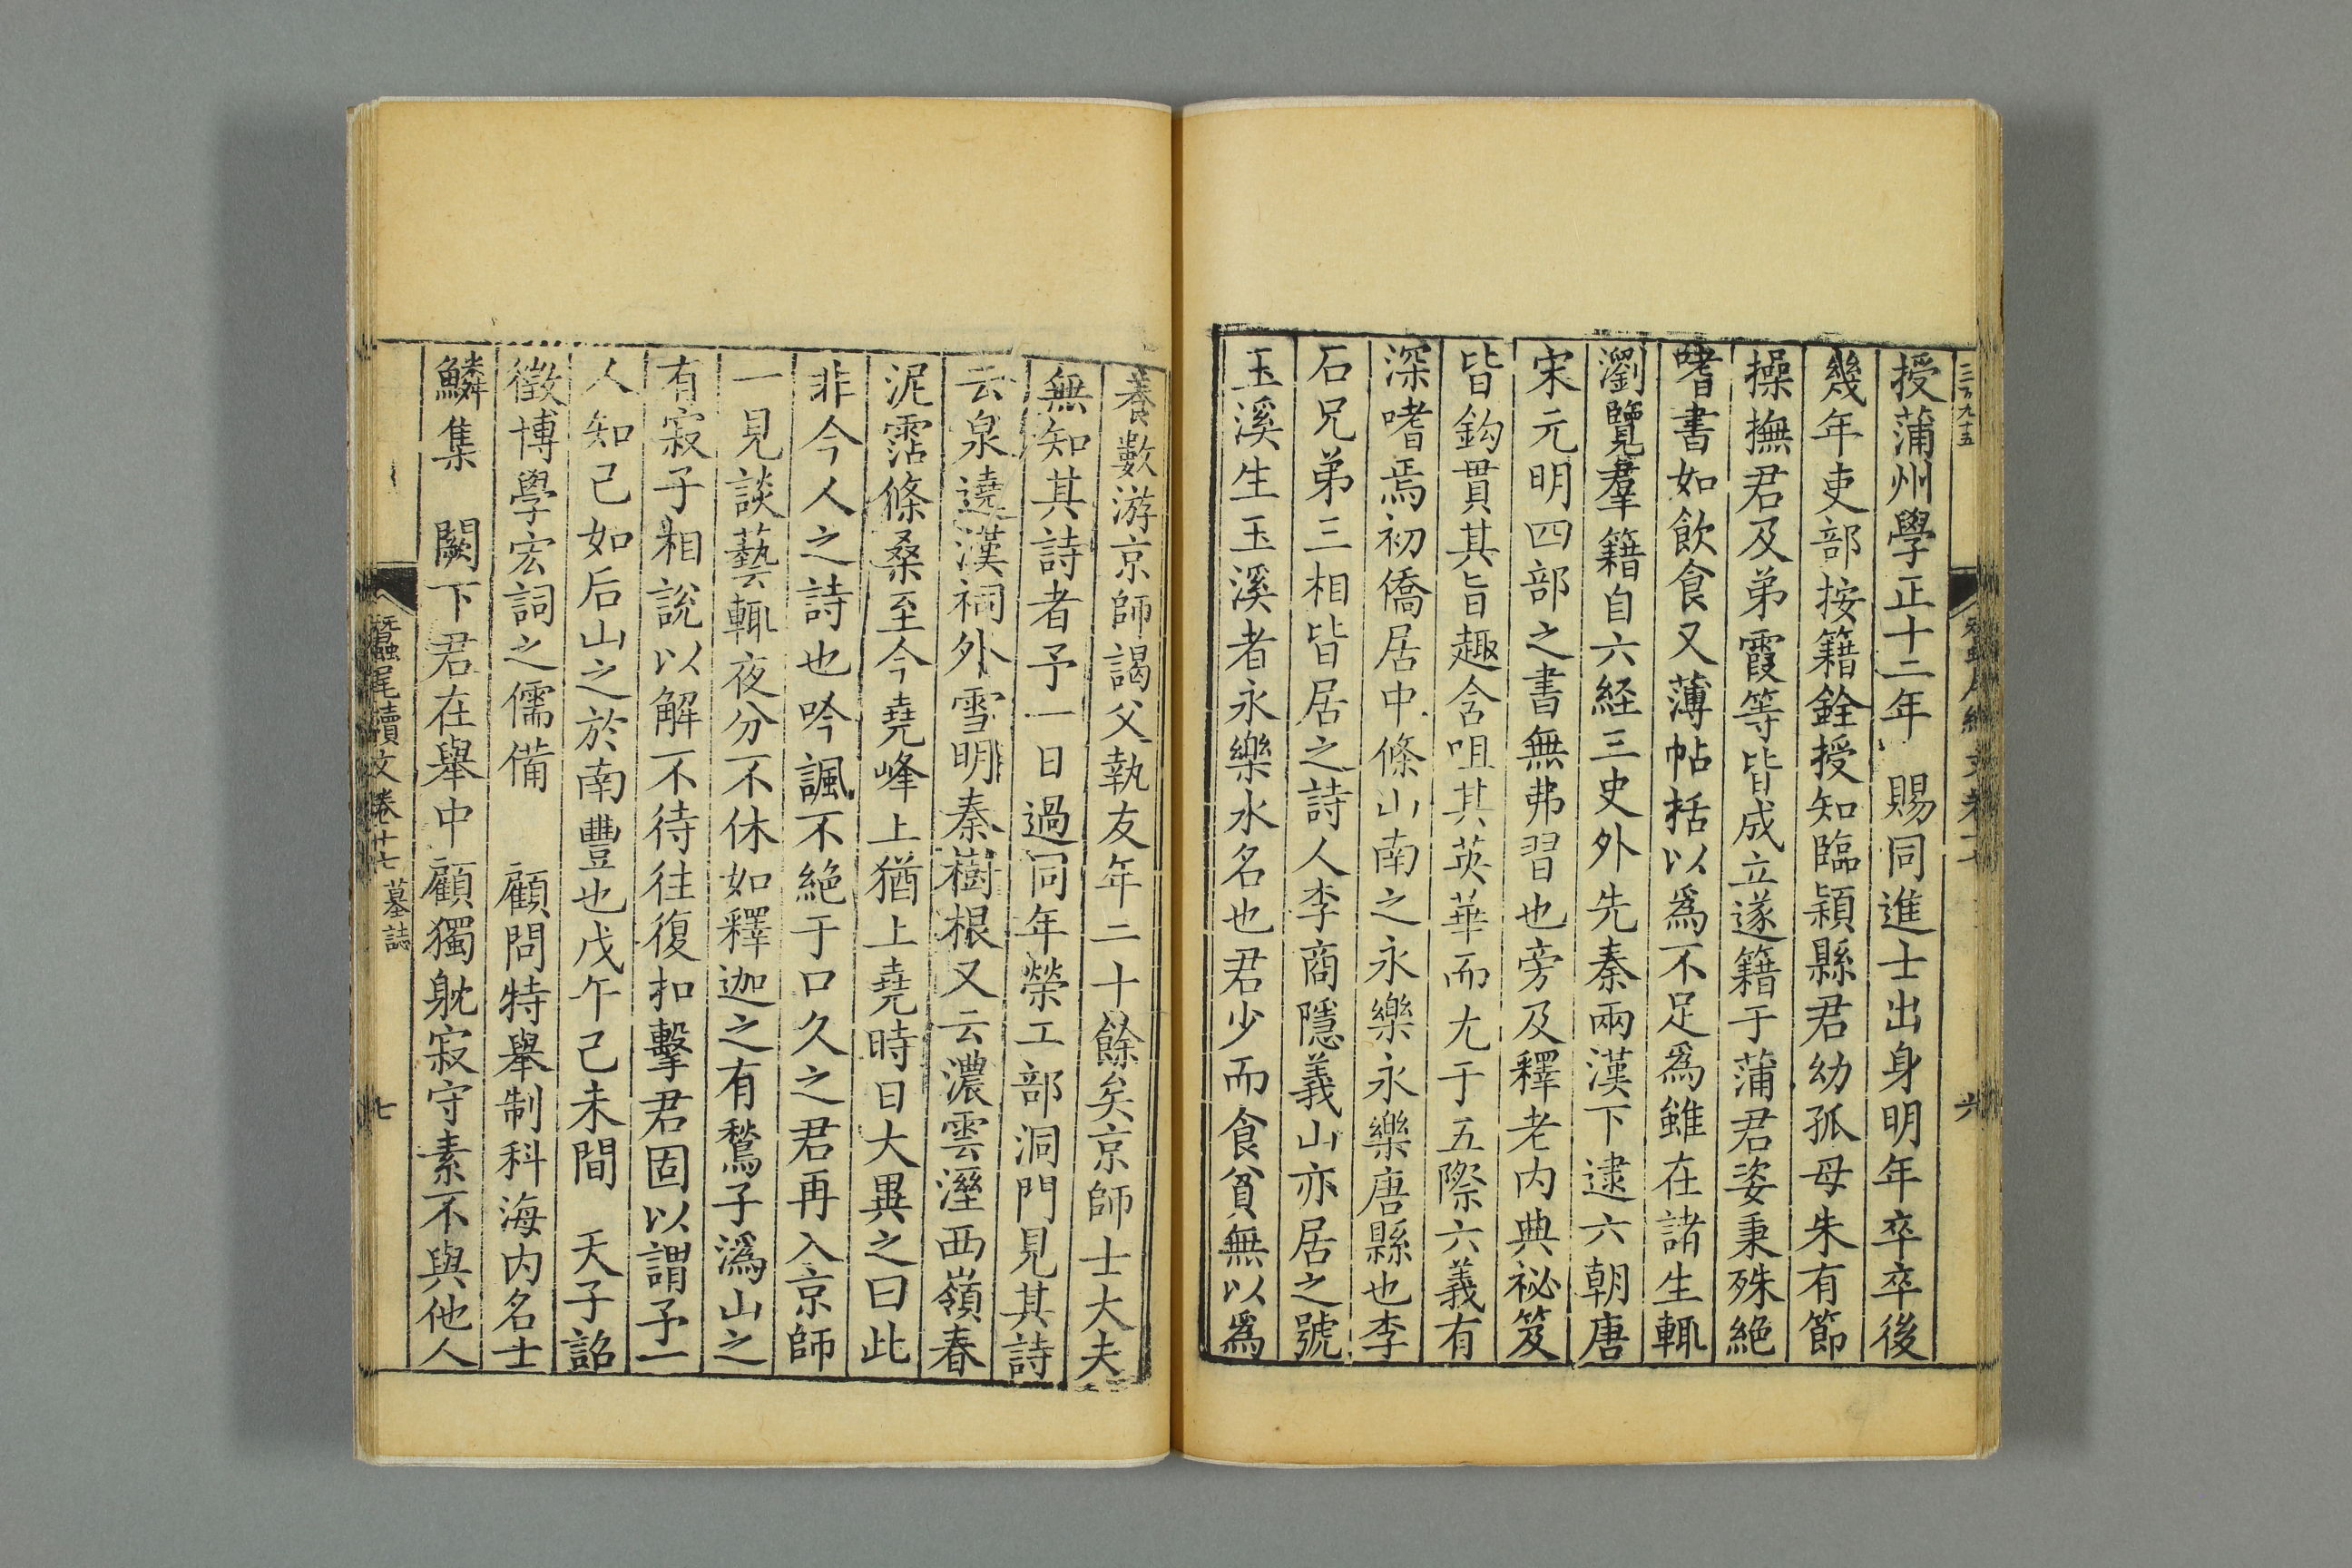 授蒲州學正十二年　賜同進士出身明年卒卒後
幾年吏部按籍銓授知臨潁縣君幼孤母朱有節
操撫君及弟霞等皆成立遂籍于蒲君姿秉殊絶
嗜書如飲食又薄帖括以爲不足爲雖在諸生輒
瀏覽羣籍自六経三史外先秦兩漢下逮六朝唐
宋元明四部之書無弗習也旁及釋老内典祕笈
皆鈎貫其旨趣含咀其英華而尤于五際六義有
深嗜焉初僑居中條山南之永樂永樂唐縣也李
石兄弟三相皆居之詩人李商隱義山亦居之號
玉溪生玉溪者永樂水名也君少而食貧無以爲
養數游京師謁父執友年二十餘矣京師士大夫
無知其詩者予一日過同年榮工部洞門見其詩
云泉遶漢祠外雪明秦樹根又云濃雲溼西嶺春
泥霑條桑至今堯峰上猶上堯時日大異之曰此
非今人之詩也吟諷不絶于口久之君再入京師
一見談藝輒夜分不休如釋迦之有鶖子潙山之
有寂子相說以解不待往復扣擊君固以謂予一
人知己如后山之於南豐也戊午己未間　天子詔
徵博學宏詞之儒備　顧問特舉制科海内名士
鱗集　闕下君在舉中顧獨躭寂守素不與他人
蠶尾續文卷十七　墓誌　七